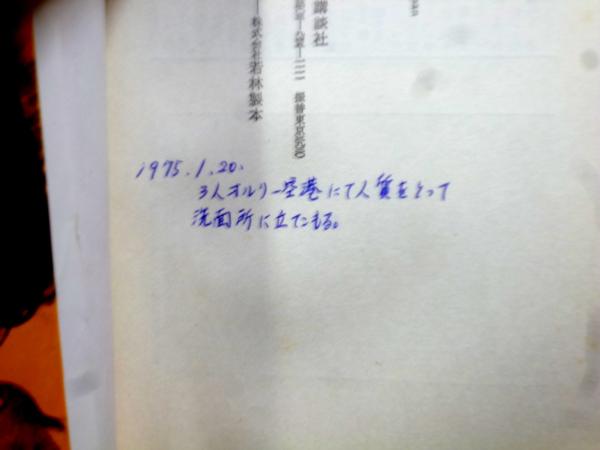 講談社
振替東京
株式会社若林製本
1975.1.20.
3人オルリー空港にて人質をとって
洗面所に立てこもる。